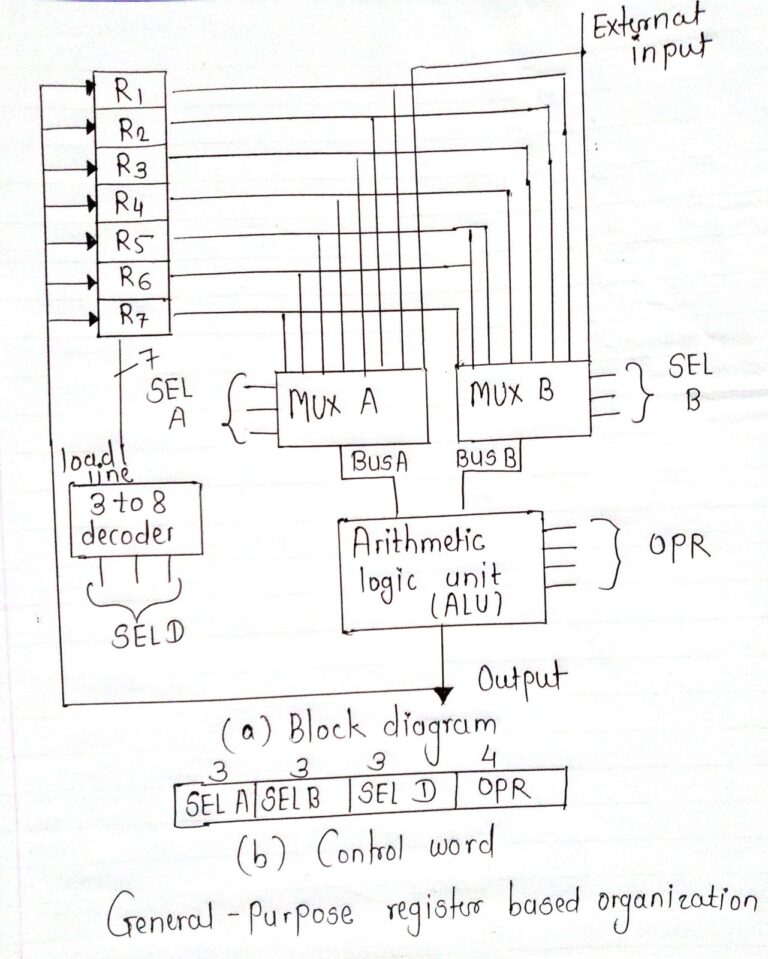 External
input
R1
R2
R3
R4
R5
R6
R7
7
SEL
A
MUX A
MUX B
SEL
B
BUSA
BUS B
load
line
3 to 8
decoder
SEL D
Arithmetic
logic unit
(ALU)
OPR
Output
(a) Block diagram
3 3 3 4
SEL A SELB SEL D OPR
(b) Control word
General-Purpose register based organization